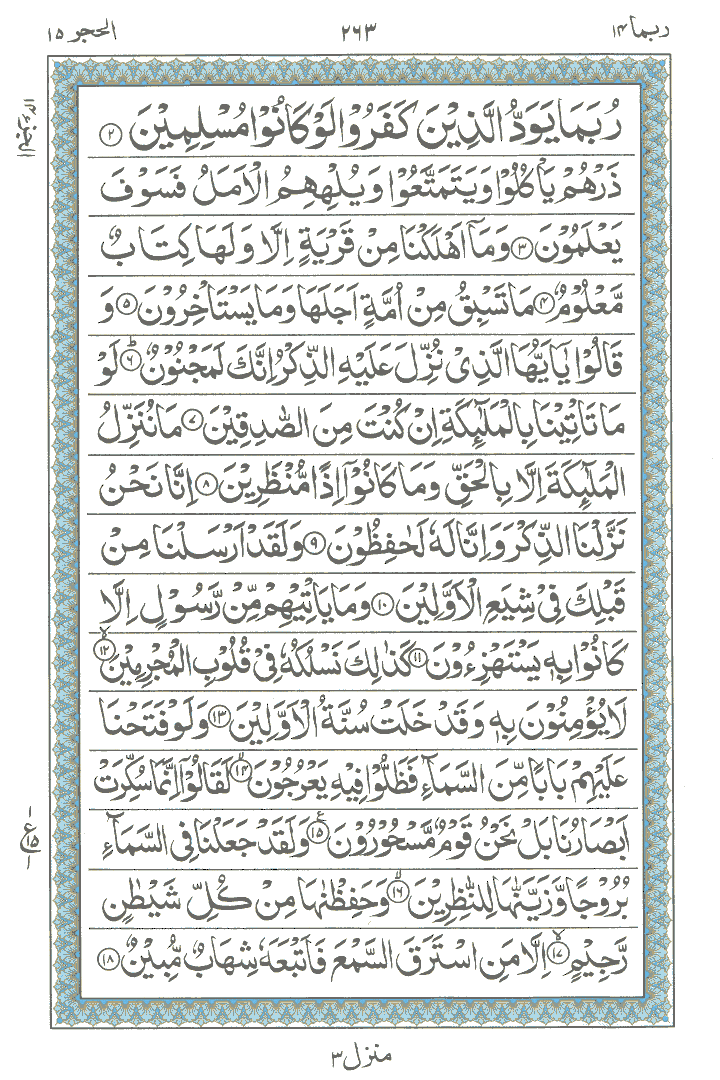 ربما ١٤
٢٦٣
الحجر ١٥
الجزء ١٤
رُبَمَا يَوَدُّ الَّذِيْنَ كَفَرُوْا لَوْ كَانُوْا مُسْلِمِيْنَ ﴿٢﴾
ذَرْهُمْ يَاْكُلُوْا وَيَتَمَتَّعُوْا وَيُلْهِهِمُ الْاَمَلُ فَسَوْفَ
يَعْلَمُوْنَ ﴿٣﴾ وَمَاۤ اَهْلَكْنَا مِنْ قَرْيَةٍ اِلَّا وَلَهَا كِتَابٌ
مَّعْلُوْمٌ ﴿٤﴾ مَا تَسْبِقُ مِنْ اُمَّةٍ اَجَلَهَا وَمَا يَسْتَاْخِرُوْنَ ﴿٥﴾ وَ
قَالُوْا يٰۤاَيُّهَا الَّذِىْ نُزِّلَ عَلَيْهِ الذِّكْرُ اِنَّكَ لَمَجْنُوْنٌ ؕ﴿٦﴾ لَوْ
مَا تَاْتِيْنَا بِالْمَلٰٓئِكَةِ اِنْ كُنْتَ مِنَ الصّٰدِقِيْنَ ﴿٧﴾ مَا نُنَزِّلُ
الْمَلٰٓئِكَةَ اِلَّا بِالْحَقِّ وَمَا كَانُوْۤا اِذًا مُّنْظَرِيْنَ ﴿٨﴾ اِنَّا نَحْنُ
نَزَّلْنَا الذِّكْرَ وَاِنَّا لَهٗ لَحٰفِظُوْنَ ﴿٩﴾ وَلَقَدْ اَرْسَلْنَا مِنْ
قَبْلِكَ فِىْ شِيَعِ الْاَوَّلِيْنَ ﴿١٠﴾ وَمَا يَاْتِيْهِمْ مِّنْ رَّسُوْلٍ اِلَّا
كَانُوْا بِهٖ يَسْتَهْزِءُوْنَ ﴿١١﴾ كَذٰلِكَ نَسْلُكُهٗ فِىْ قُلُوْبِ الْمُجْرِمِيْنَ ۙ﴿١٢﴾
لَا يُؤْمِنُوْنَ بِهٖ وَقَدْ خَلَتْ سُنَّةُ الْاَوَّلِيْنَ ﴿١٣﴾ وَلَوْ فَتَحْنَا
عَلَيْهِمْ بَابًا مِّنَ السَّمَآءِ فَظَلُّوْا فِيْهِ يَعْرُجُوْنَ ۙ﴿١٤﴾ لَقَالُوْۤا اِنَّمَا سُكِّرَتْ
اَبْصَارُنَا بَلْ نَحْنُ قَوْمٌ مَّسْحُوْرُوْنَ ﴿١٥﴾ع وَلَقَدْ جَعَلْنَا فِى السَّمَآءِ
بُرُوْجًا وَّزَيَّنّٰهَا لِلنّٰظِرِيْنَ ۙ﴿١٦﴾ وَحَفِظْنٰهَا مِنْ كُلِّ شَيْطٰنٍ
رَّجِيْمٍ ۙ﴿١٧﴾ اِلَّا مَنِ اسْتَرَقَ السَّمْعَ فَاَتْبَعَهٗ شِهَابٌ مُّبِيْنٌ ﴿١٨﴾
ع
١٥
منزل ٣